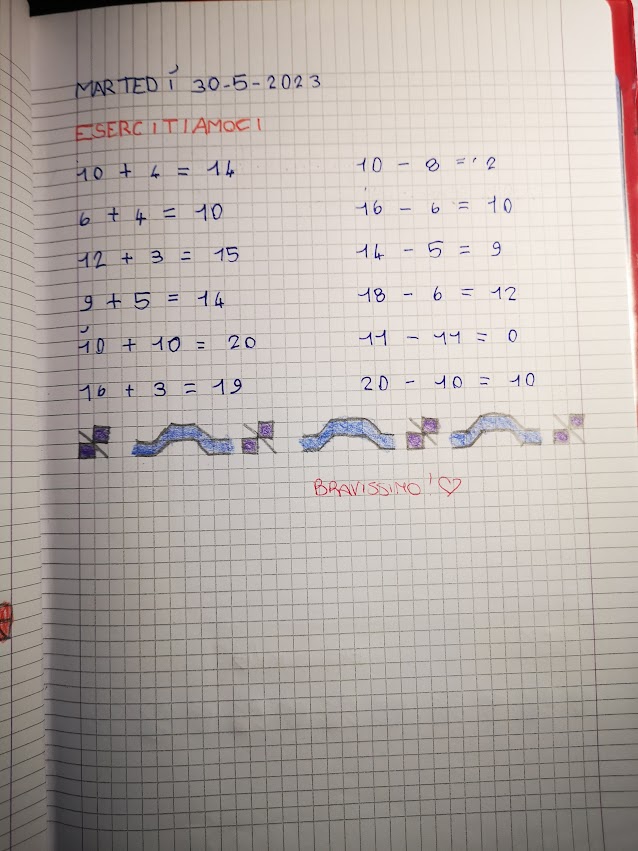 MARTEDÌ 30-5-2023
ESERCITIAMOCI
10 + 4 = 14
6 + 4 = 10
12 + 3 = 15
9 + 5 = 14
10 + 10 = 20
16 + 3 = 19
10 - 8 = 2
16 - 6 = 10
14 - 5 = 9
18 - 6 = 12
11 - 11 = 0
20 - 10 = 10
BRAVISSIMO!♡